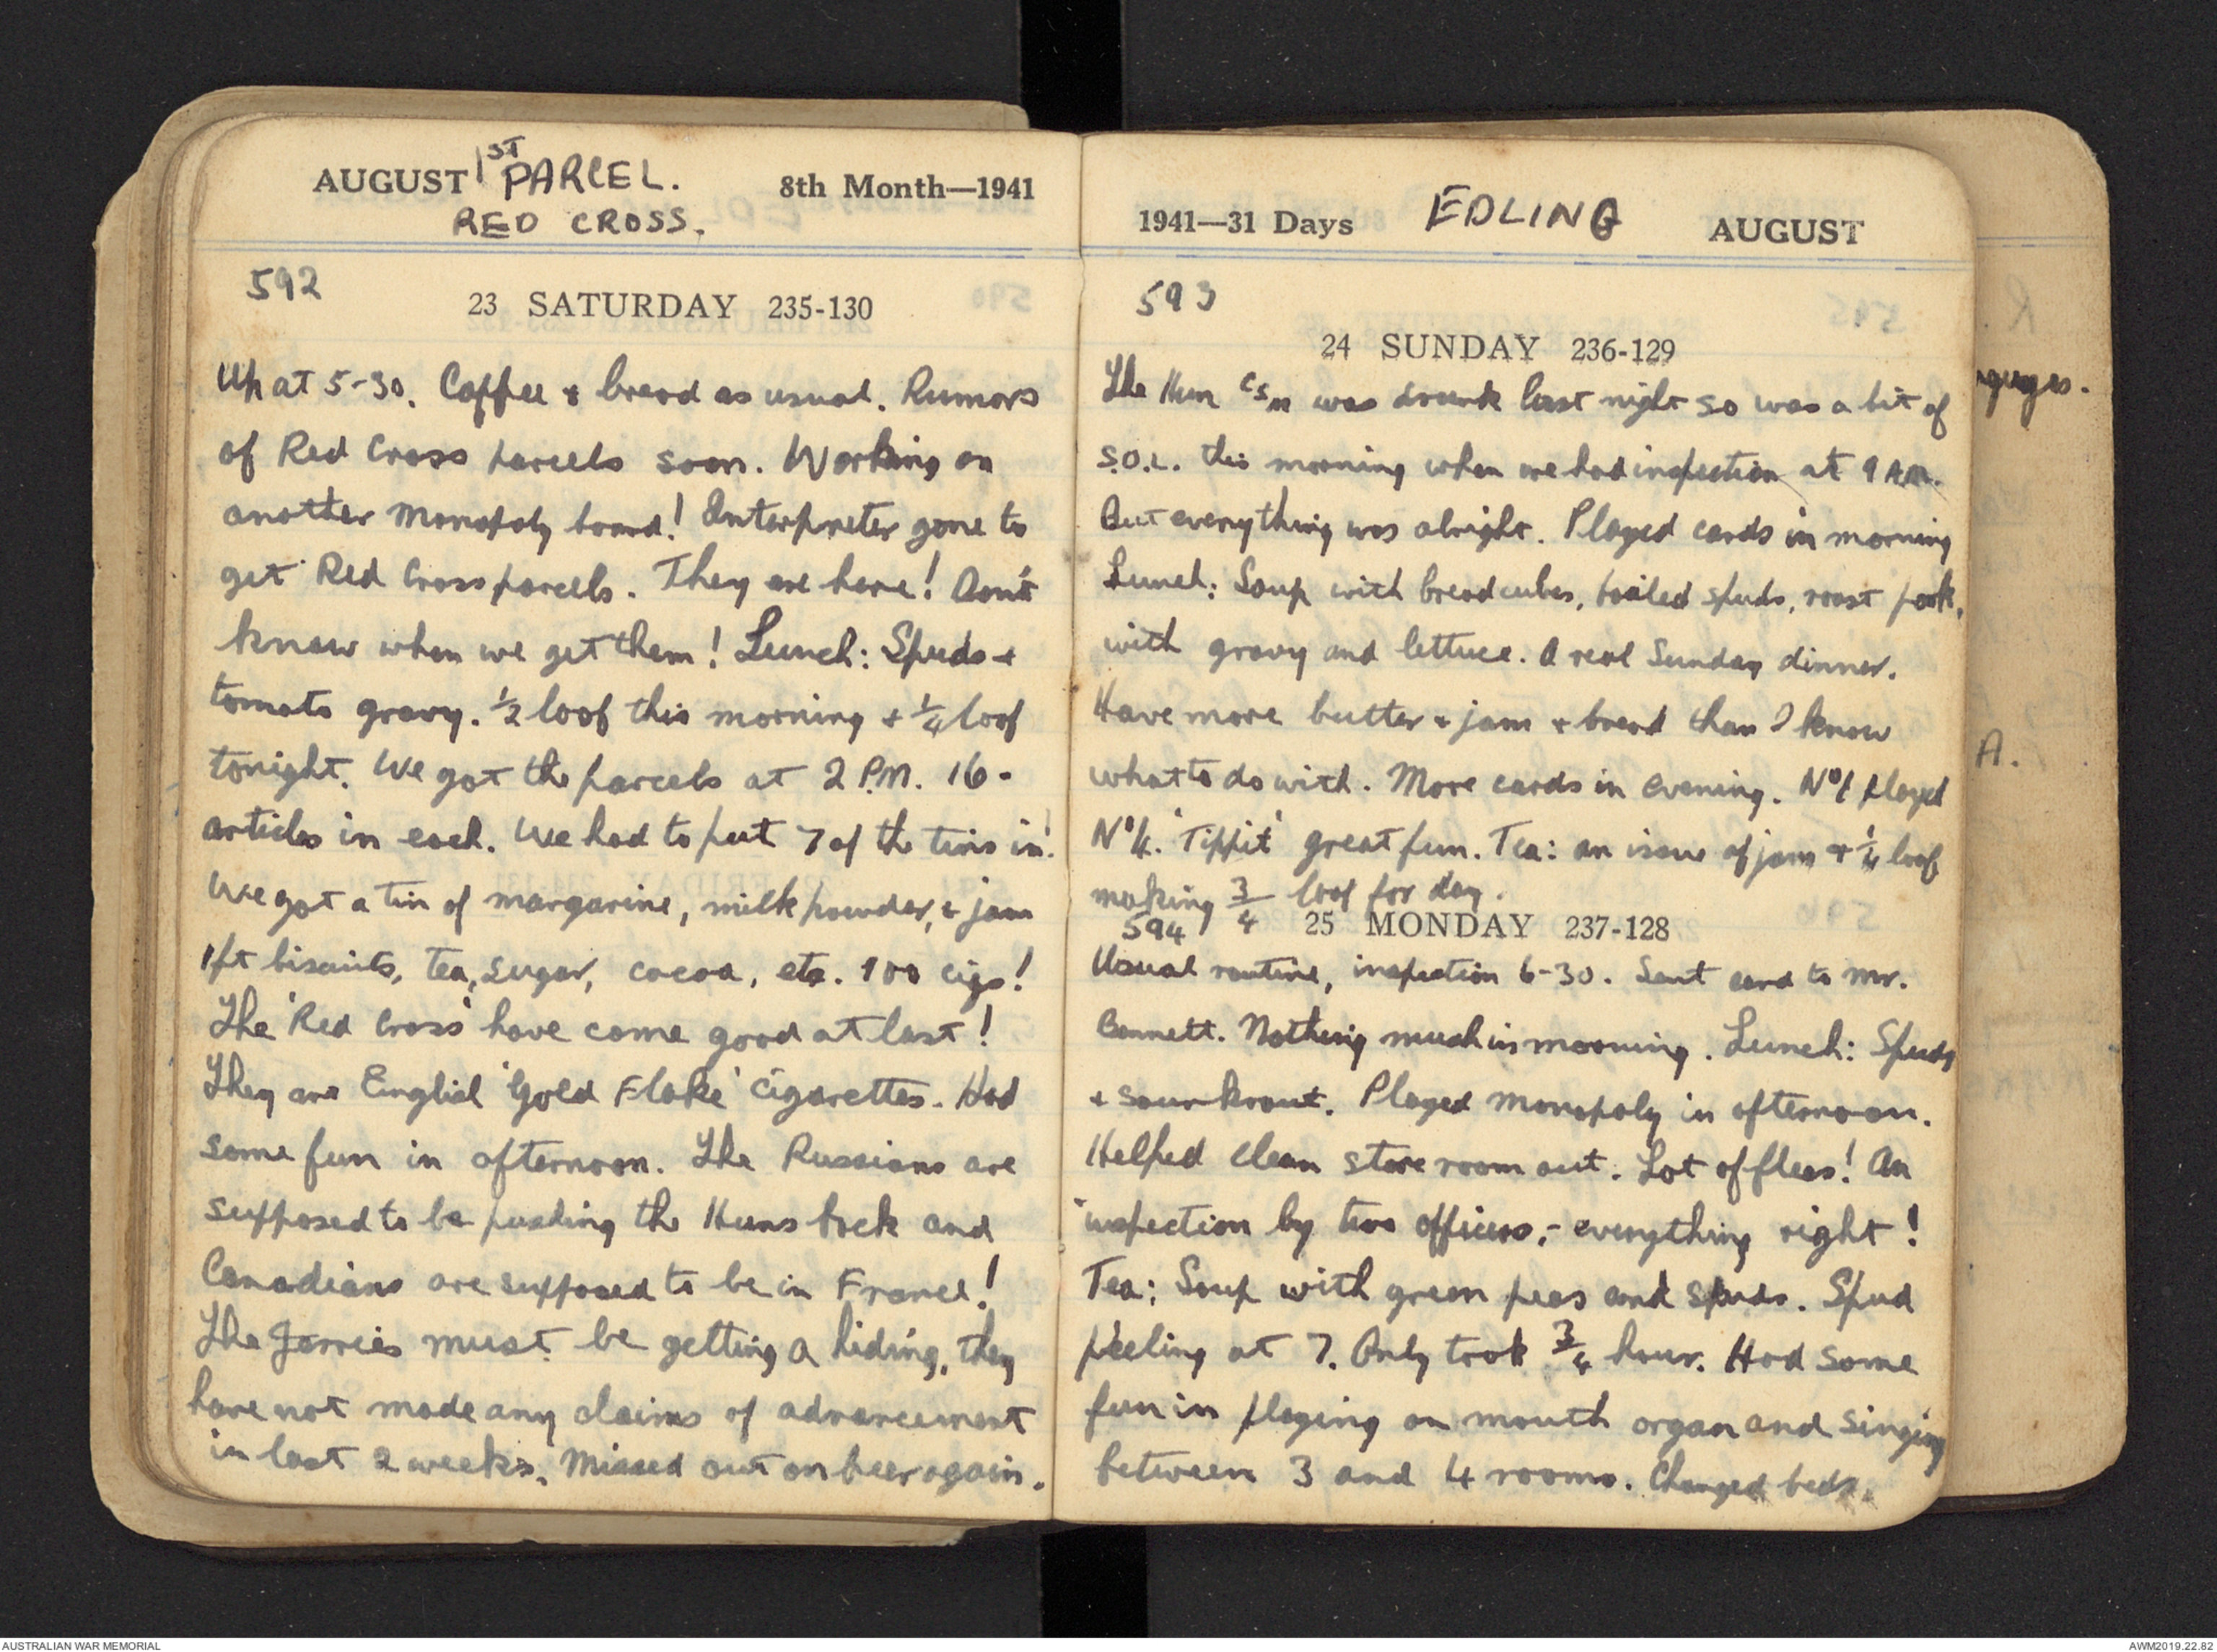 AUGUST 1ST PARCEL. 8th Month—1941
RED CROSS.
592
23 SATURDAY 235-130
Up at 5-30. Coffee & bread as usual. Rumors
of Red Cross parcels soon. Working on
another monopoly board! Interpreter gone to
get Red Cross parcels. They are here! Don't
know when we get them! Lunch: Spuds +
tomato gravy. ½ loaf this morning + ¼ loaf
tonight. We got the parcels at 2 P.M. 16-
articles in each. We had to put 7 of the tins in!
We got a tin of margarine, milk powder, & jam
1 pt biscuits, Tea, sugar, cocoa, etc. 100 cigs!
The 'Red Cross' have come good at last!
They are English 'Gold Flake' cigarettes. Had
some fun in afternoon. The Russians are
supposed to be pushing the Huns back and
Canadians are supposed to be in France!
The Jerries must be getting a hiding, they
have not made any claims of advancement
in last 2 weeks. Missed out on beer again.
1941—31 Days EDLING AUGUST
593
24 SUNDAY 236-129
The Hun CSM was drunk last night so was a bit of
S.O.L. this morning when we had inspection at 9 A.M.
But everything was alright. Played cards in morning
Lunch: Soup with bread cubes, boiled spuds, roast pork,
with gravy and lettuce. A real Sunday dinner.
Have more butter & jam & bread than I know
what to do with. More cards in evening. No 1 played
No 4. 'Tippit' great fun. Tea: an issue of jam + ¼ loaf
making 3/4 loaf for day.
594 25 MONDAY 237-128
Usual routine, inspection 6-30. Sent card to Mr.
Bennett. Nothing much in morning. Lunch: Spuds
+ sourkrout. Played monopoly in afternoon.
Helped clean store room out. Lot of fleas! An
inspection by two officers,- everything right!
Tea: Soup with green peas and spuds. Spud
peeling at 7. Only took 3/4 hour. Had some
fun in playing on mouth organ and singing
between 3 and 4 rooms. Changed beds.
A.
AUSTRALIAN WAR MEMORIAL
AWM2019.22.82